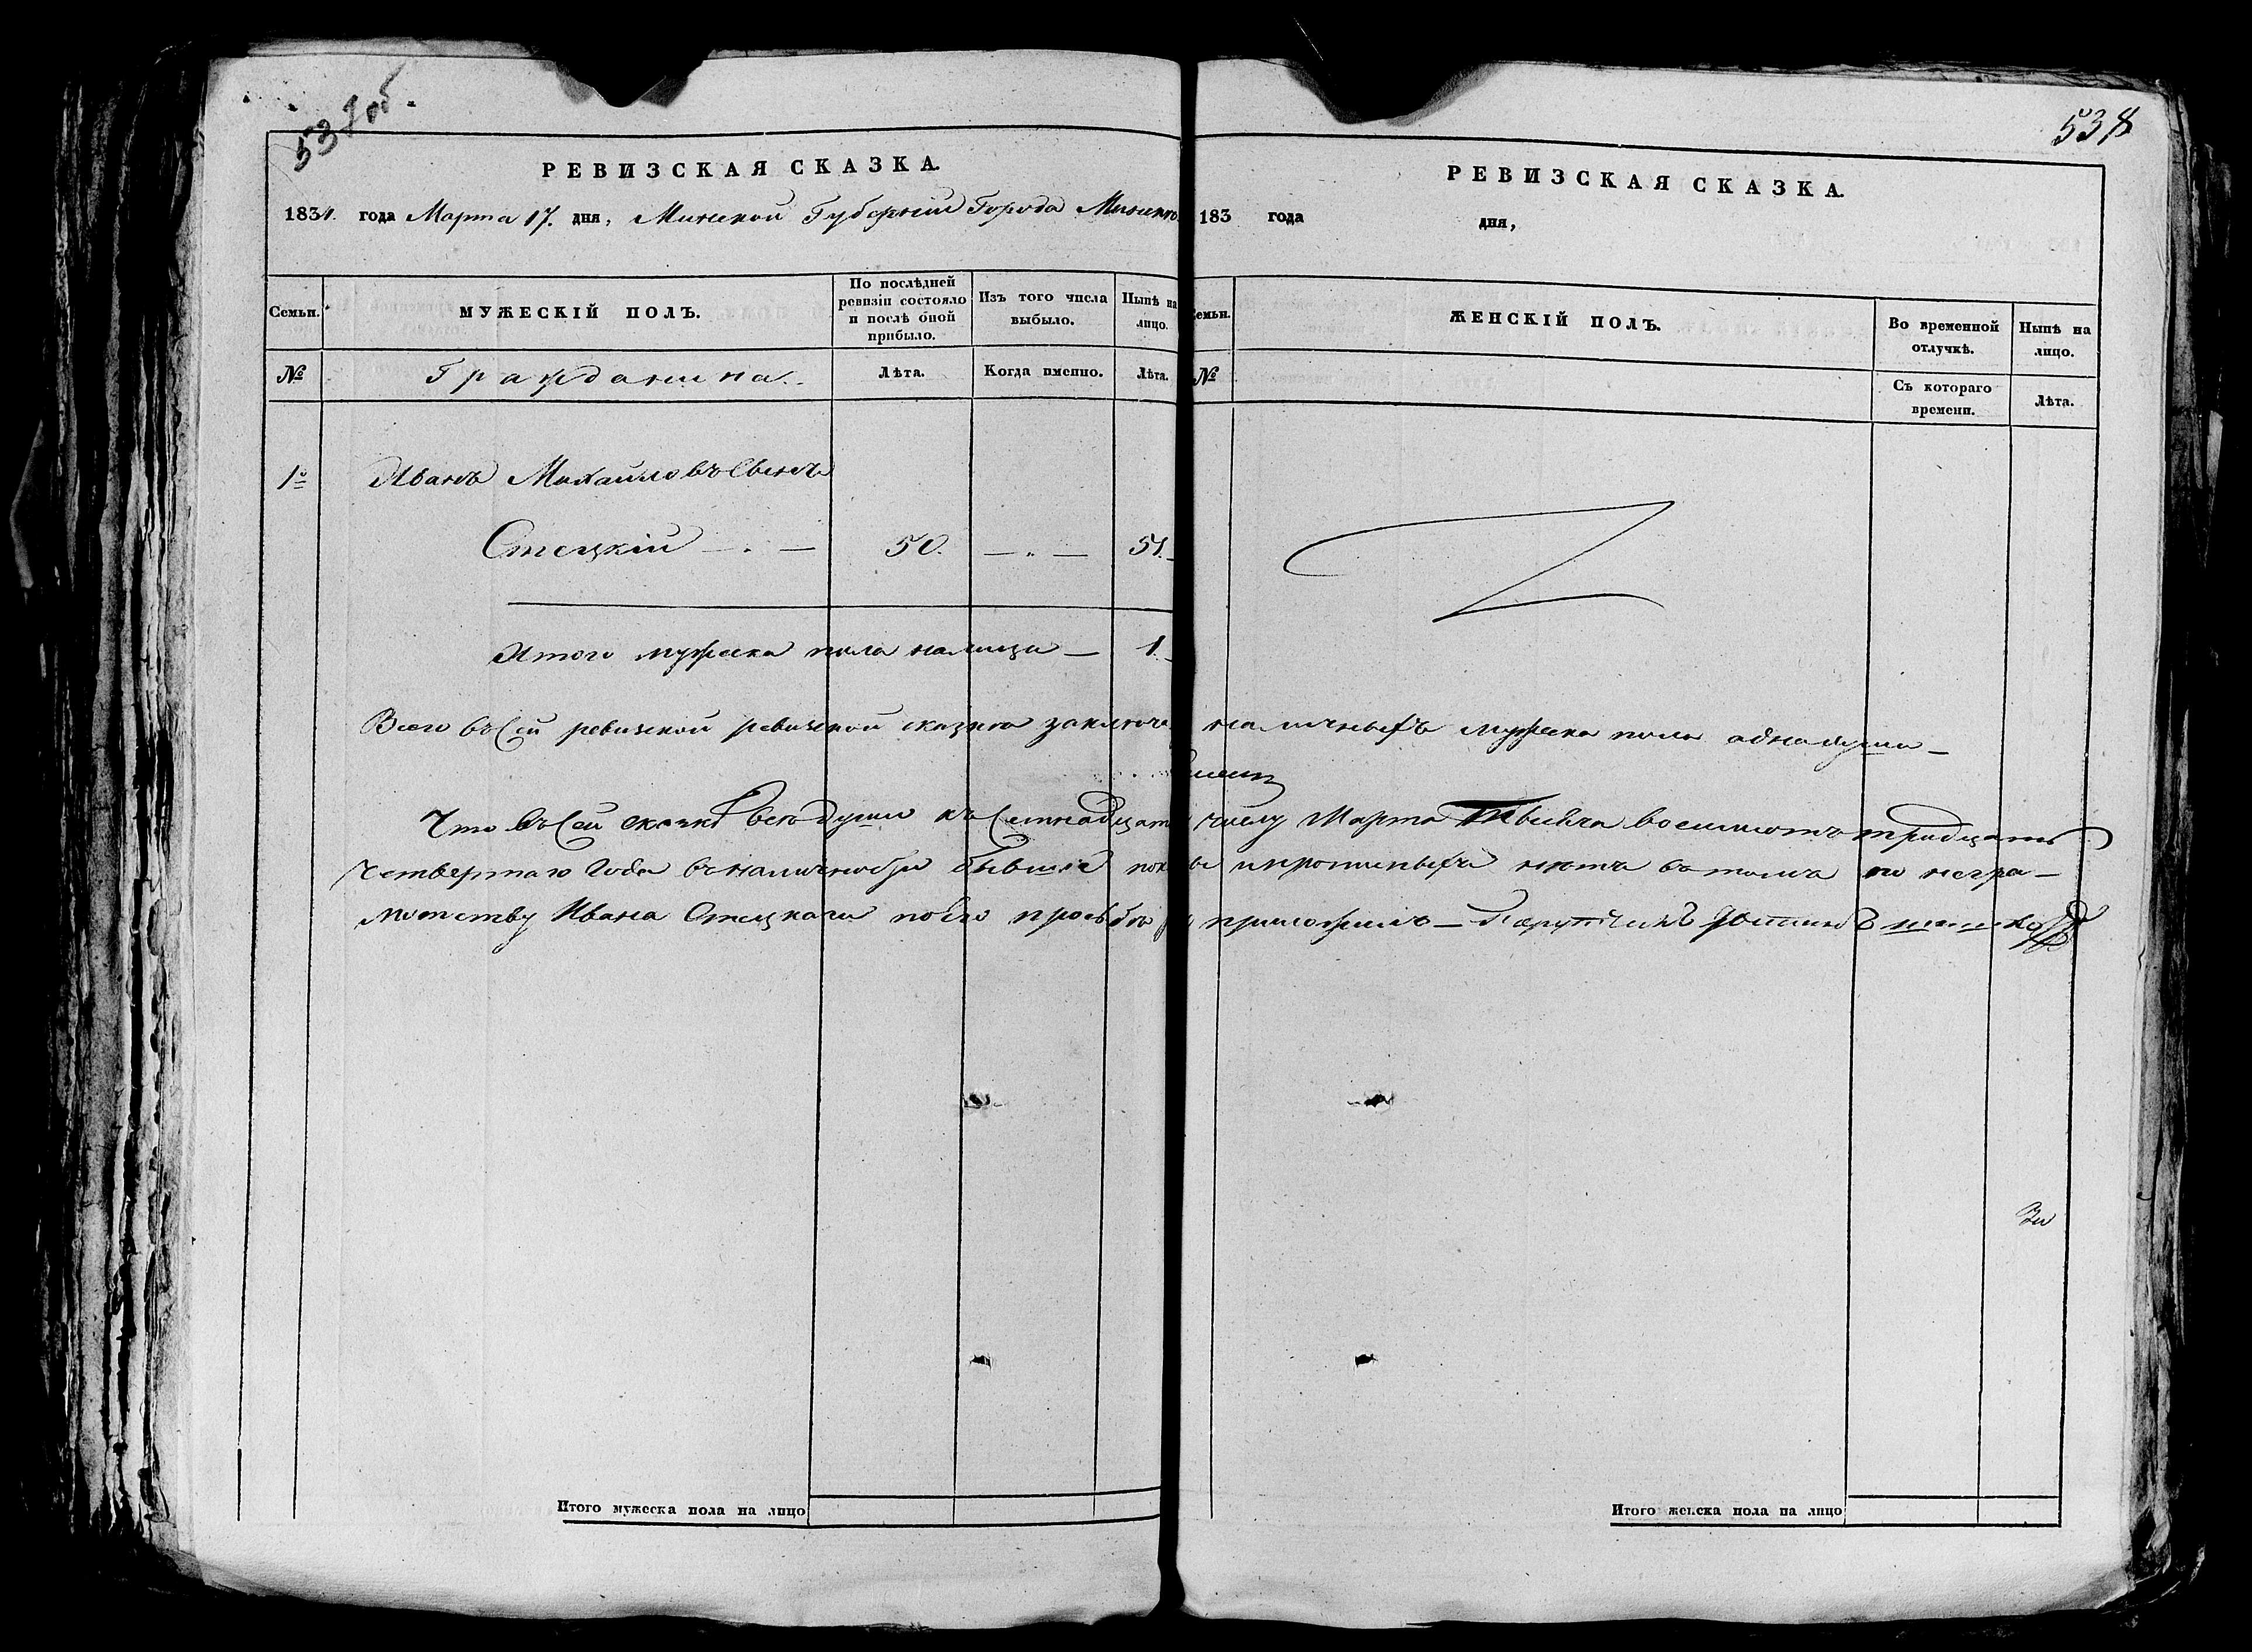 53 7 об.
РЕВИЗСКАЯ СКАЗКА.
1834. года Марта 17. дня, Минской Губерніи Города Минска
Семьи.
МУЖЕСКІЙ ПОЛЪ.
По послѣдней ревизіи состояло и послѣ оной прибыло.
Изъ того числа выбыло.
Нынѣ на лицо.
№
Гражданина.
Лѣта.
Когда именно.
Лѣта.
1
Иванъ Михайловъ Сынъ
Стецкій 50. — „ — 51.
Итого мужеска пола налицо — 1.
Итого мужеска пола на лицо
538
РЕВИЗСКАЯ СКАЗКА.
183 года дня,
Семьи.
ЖЕНСКІЙ ПОЛЪ.
Во временной отлучкѣ.
Нынѣ на лицо.
№
Съ котораго времени.
Лѣта.
Всего въ сей ревизской ревизской сказкѣ заключ наличныхъ мужеска пола одна душа —
Что въ сей сказкѣ всѣ души къ семнадцат числу Марта Тысяча восемьсотъ тридцать
четвертаго Года въ наличности бывшіе пока ы и пропущеныхъ нѣтъ въ томъ по негра—
мотству Ивана Стецкаго по его прозьбѣ приложилъ — Порутчикъ
Итого женска пола на лицо